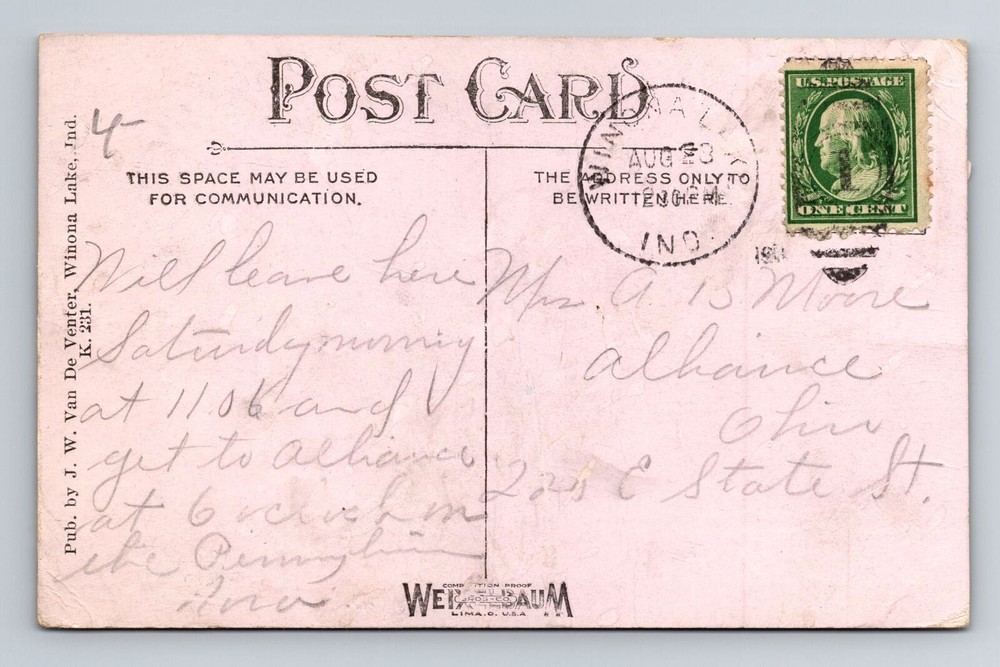 POST CARD
THIS SPACE MAY BE USED
FOR COMMUNICATION.
THE ADDRESS ONLY TO
BE WRITTEN HERE.
WINONA LAKE
AUG 23
230 PM
IND.
U.S. POSTAGE
1
ONE CENT
4
Pub. by J. W. Van De Venter, Winona Lake, Ind.
K. 231.
Will leave here
Saturday morning
at 11 06 and
get to Alliance
at 6 oclock on
the
Mrs A B Moore
Alliance
Ohio
E State St.
COMPETITION PROOF
WEIXELBAUM
BROS-CO
LIMA, O. U.S.A.